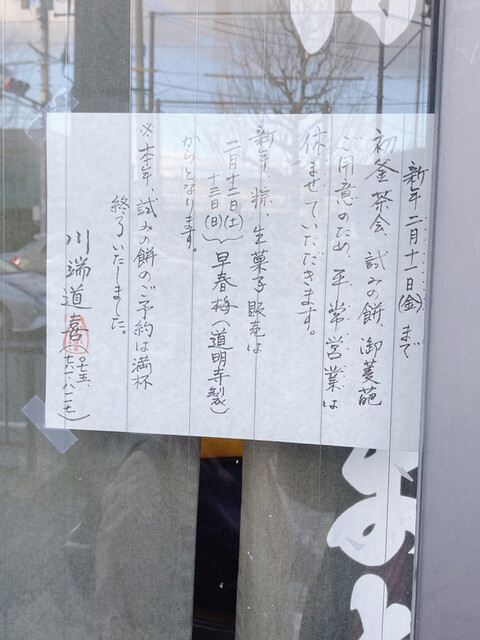 新年二月十一日(金)まで
初釜茶会、試みの餅、御菱葩
ご用意のため、平常営業は
休ませていただきます。
新年、粽、生菓子販売は
二月十二日(土)
十三日(日)
早春梅(道明寺製)
からとなります。
※本年、試みの餅のご予約は満杯
終了いたしました。
川端道喜
(〇七五、
七八一・八一一七)